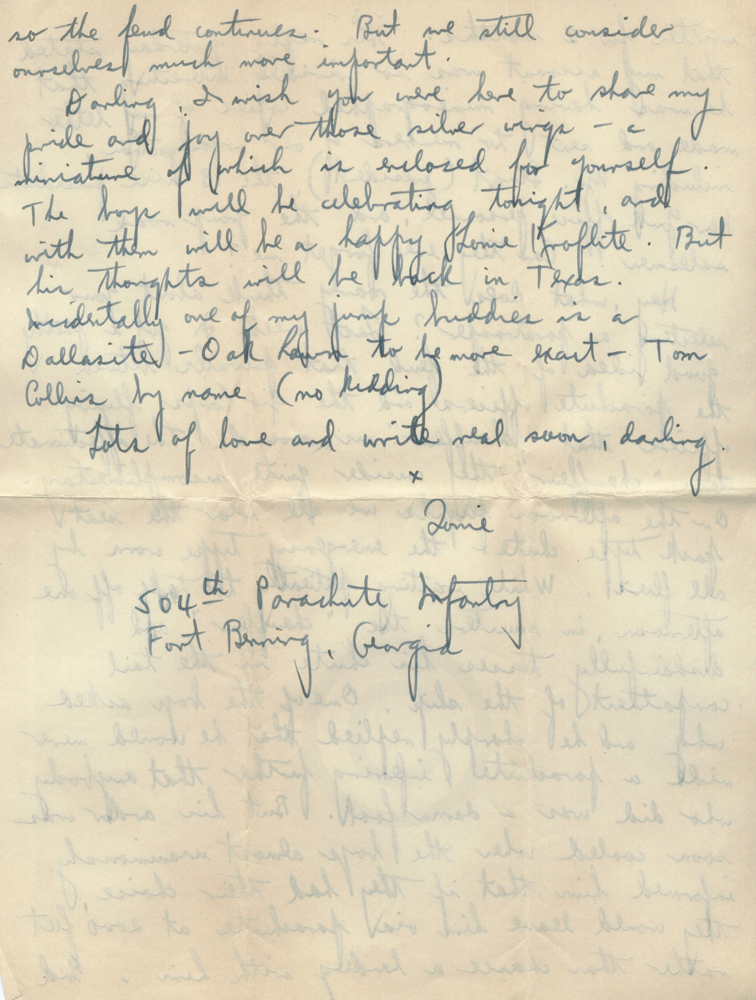 so the feud continues. But we still consider
ourselves much more important.
Darling, I wish you were here to share my
pride and joy over those silver wings - a
miniature of which is enclosed for yourself.
The boys will be celebrating tonight, and
with them will be a happy Lonie Kroflite. But
his thoughts will be back in Texas.
Incidentally one of my jump buddies is a
Dallasite - Oak Lawn to be more exact - Tom
Collins by name (no kidding)
Lots of love and write real soon, darling.
x
Lonie
504th Parachute Infantry
Fort Benning, Georgia